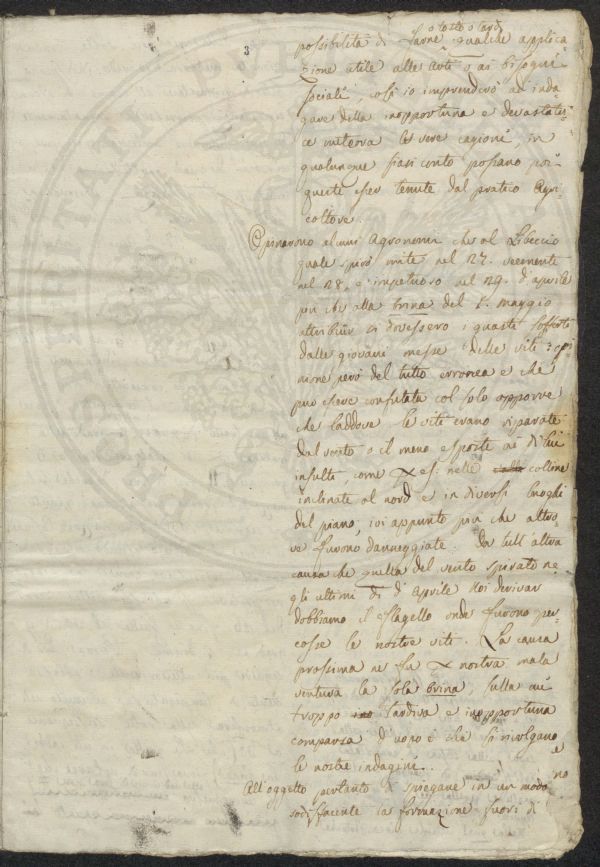 3
o tosto o tardi
possibilità di farne qualche applica-
zione utile alle arti o ai bisogni
sociali, così io imprenderò ad inda-
gare della inopportuna e devastatri-
ce meteora le vere cagioni, in
qualunque siasi conto possano poi
queste esser tenute dal pratico Agri-
coltore.
Opinarono alcuni Agronomi che al Libeccio
quale spirò mite nel 27. veemente
nel 28, e impetuoso nel 29. d'aprile
più che alla brina del 1. Maggio
attribuir si dovessero i guasti sofferti
dalle giovani messe delle viti: opi-
nione però del tutto erronea e che
può essere confutata col solo opporre
che laddove le viti erano riparate
dal vento o il meno esposte ai di lui
insulti, come p. es: nelle colline
inclinate al nord e in diversi luoghi
del piano, ivi appunto più che altro-
ve furono danneggiate. Da tutt'altra
causa che quella del vento spirato ne-
gli ultimi dì d'Aprile noi derivar
dobbiamo il flagello onde furono per-
cosse le nostre viti. La causa
prossima ne fu p nostra mala
ventura la sola brina, sulla cui
troppo tardiva e inopportuna
comparsa d'uopo è che si rivolgano
le nostre indagini...
All'oggetto pertanto di spiegare in un modo
sodisfacente la formazione fuori di